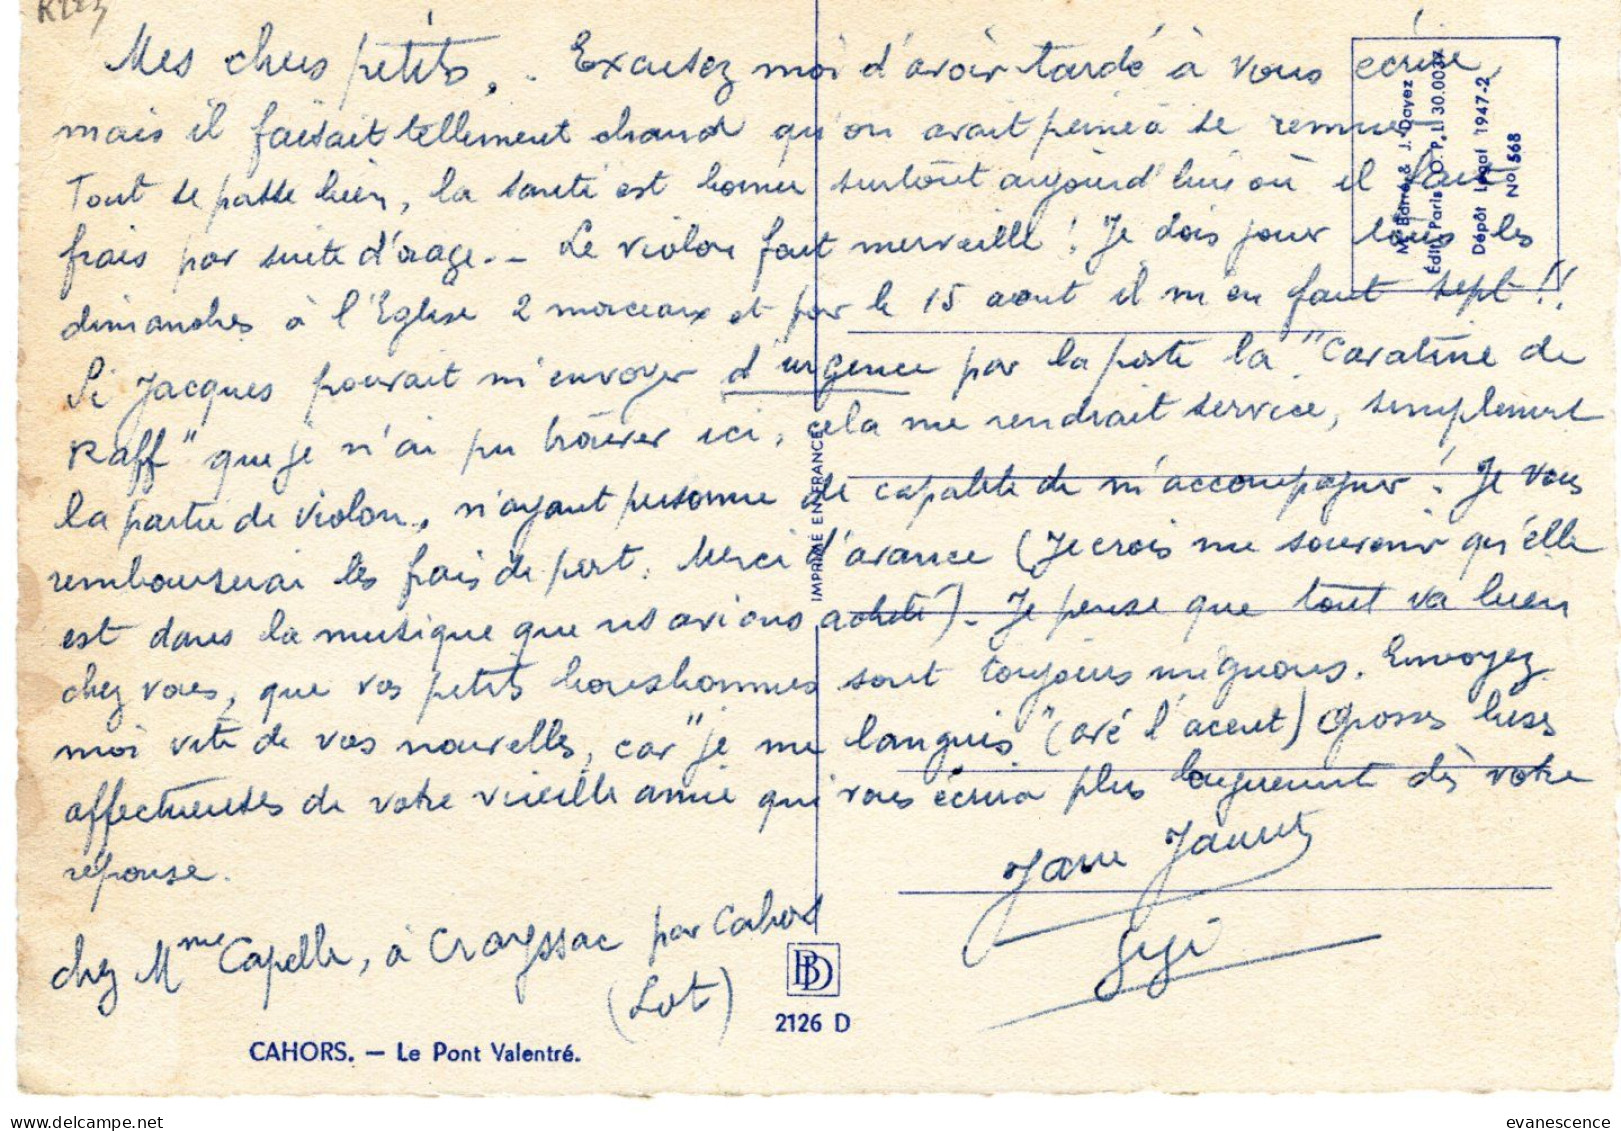 Mes chers petits, . Excusez moi d'avoir tardé à vous écrire,
mais il faisait tellement chaud qu'on avait peine à se remuer
Tout se passe bien, la santé est bonne surtout aujourd'hui où il fait
frais par suite d'orage.. Le violon fait merveille ! Je dois jouer tous les
dimanches à l'Eglise 2 morceaux et par le 15 aout il m'en faut sept !!
Si Jacques pouvait m'envoyer d'urgence par la poste la "Cavatine de
Raff" que je n'ai pu trouver ici, cela me rendrait service, simplement
la partie de violon, n'ayant personne de capable de m'accompagner ! Je vous
rembourserai les frais de port. Merci d'avance (Je crois me souvenir qu'elle
est dans la musique que ns avions acheté). Je pense que tout va bien
chez vous, que vos petits bonshommes sont toujours mignons. Envoyez
moi vite de vos nouvelles, car "je me languis" (avé l'acent) Grosses bises
affectueuses de votre vieille amie qui vous écrira plus longuement dès votre
réponse.
Gigi
chez Mme Capelle, à Crayssac par Cahors
(Lot)
M. Barré & J. Dayez
Édit. Paris
Dépôt Légal 1947-2
No 568
IMPRIMÉ EN FRANCE
BD
2126 D
CAHORS. — Le Pont Valentré.
https://www.delcampe.net
evanescence